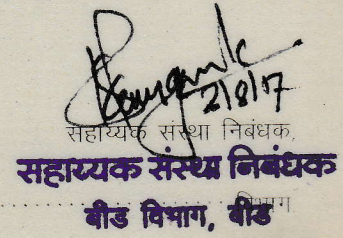 2/8/17
सहाय्यक संस्था निबंधक,
सहाय्यक संस्था निबंधक
विभाग
बीड विभाग, बीड